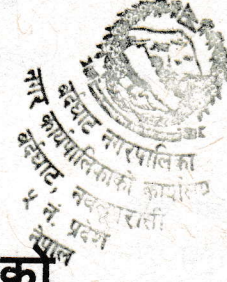 बर्दघाट नगरपालिका
नगर कार्यपालिकाको कार्यालय
बर्दघाट, नवलपरासी
५ नं. प्रदेश
नेपाल
को